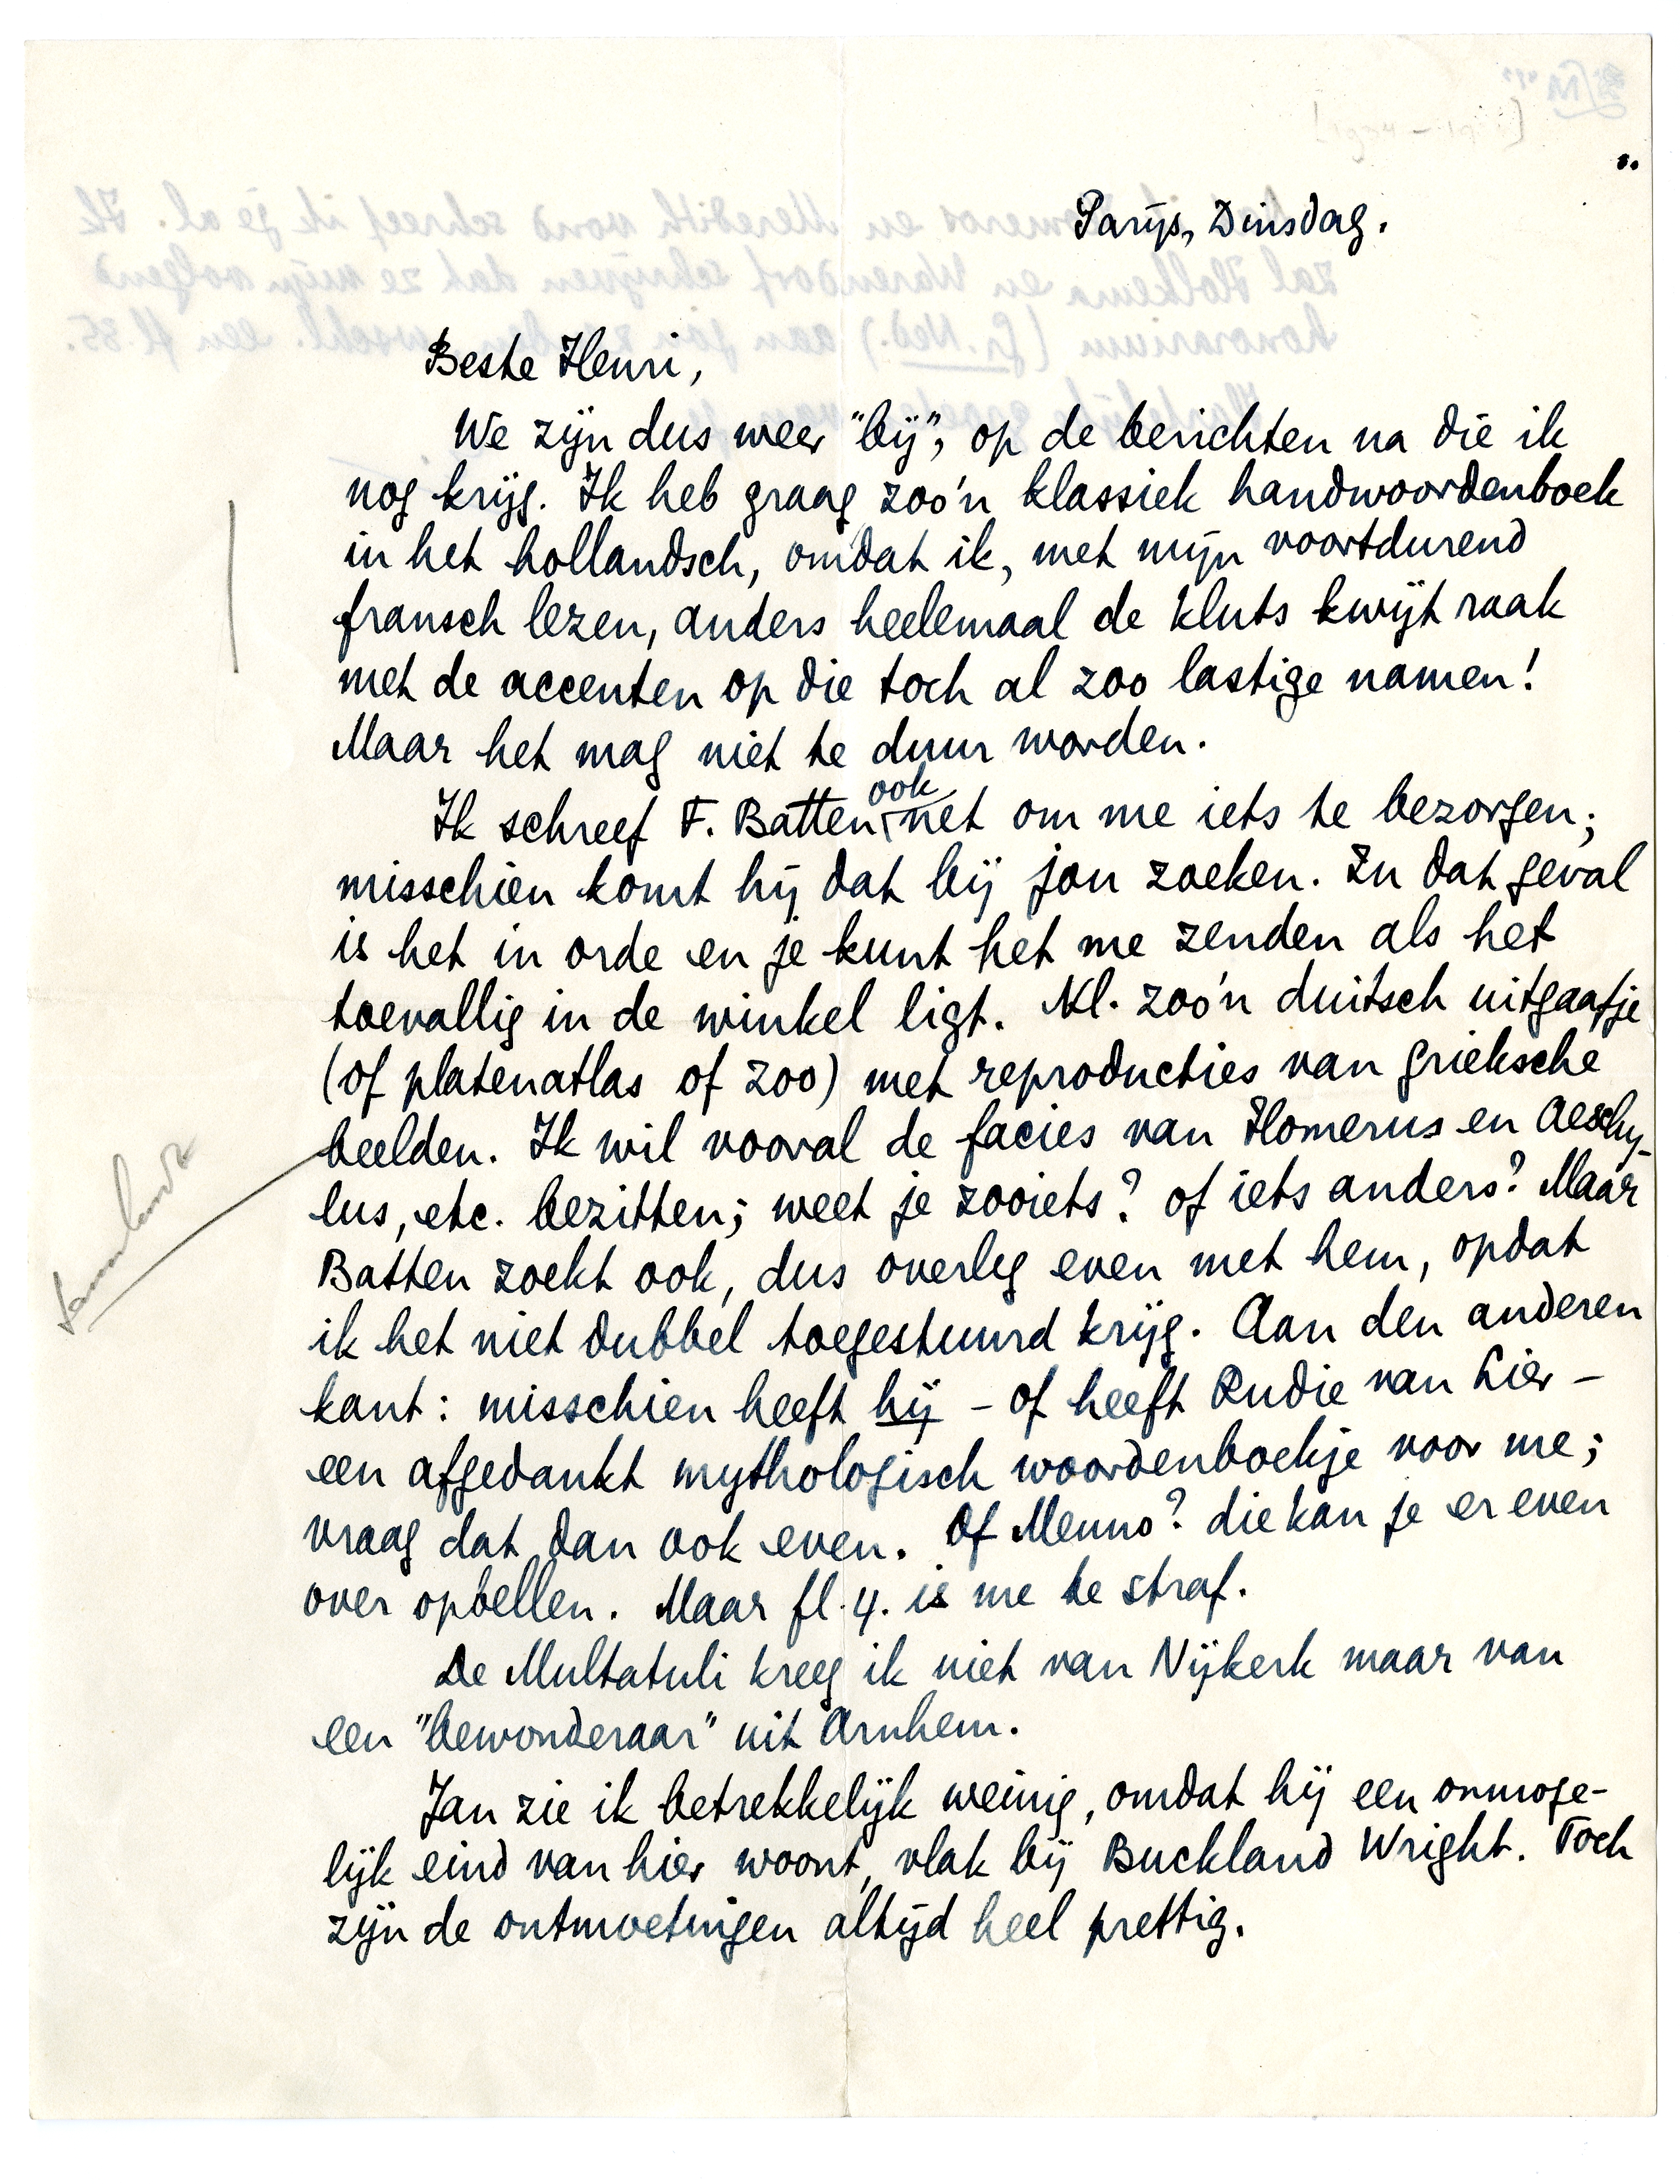 Parijs, Dinsdag.
Beste Henri,
We zijn dus weer "bij", op de berichten na die ik
nog krijg. Ik heb graag zoo'n klassiek handwoordenboek
in het hollandsch, omdat ik, met mijn voortdurend
fransch lezen, anders heelemaal de kluts kwijt raak
met de accenten op die toch al zoo lastige namen!
Maar het mag niet te duur worden.
Ik schreef F. Batten ook net om me iets te bezorgen;
misschien komt hij dat bij jou zoeken. In dat geval
is het in orde en je kunt het me zenden als het
toevallig in de winkel ligt. Nl. zoo'n duitsch uitgaafje
(of platenatlas of zoo) met reproducties van grieksche
beelden. Ik wil vooral de facies van Homerus en Aeschy-
lus, etc. bezitten; weet je zooiets? of iets anders? Maar
Batten zoekt ook, dus overleg even met hem, opdat
ik het niet dubbel toegestuurd krijg. Aan den anderen
kant: misschien heeft hij – of heeft Rudie van Lier –
een afgedankt mythologisch woordenboekje voor me;
vraag dat dan ook even. Of Menno? die kan je er even
over opbellen. Maar fl. 4. is me te straf.
De Multatuli kreeg ik niet van Nijkerk maar van
een "bewonderaar" uit Arnhem.
Jan zie ik betrekkelijk weinig, omdat hij een onmoge-
lijk eind van hier woont, vlak bij Buckland Wright. Toch
zijn de ontmoetingen altijd heel prettig.